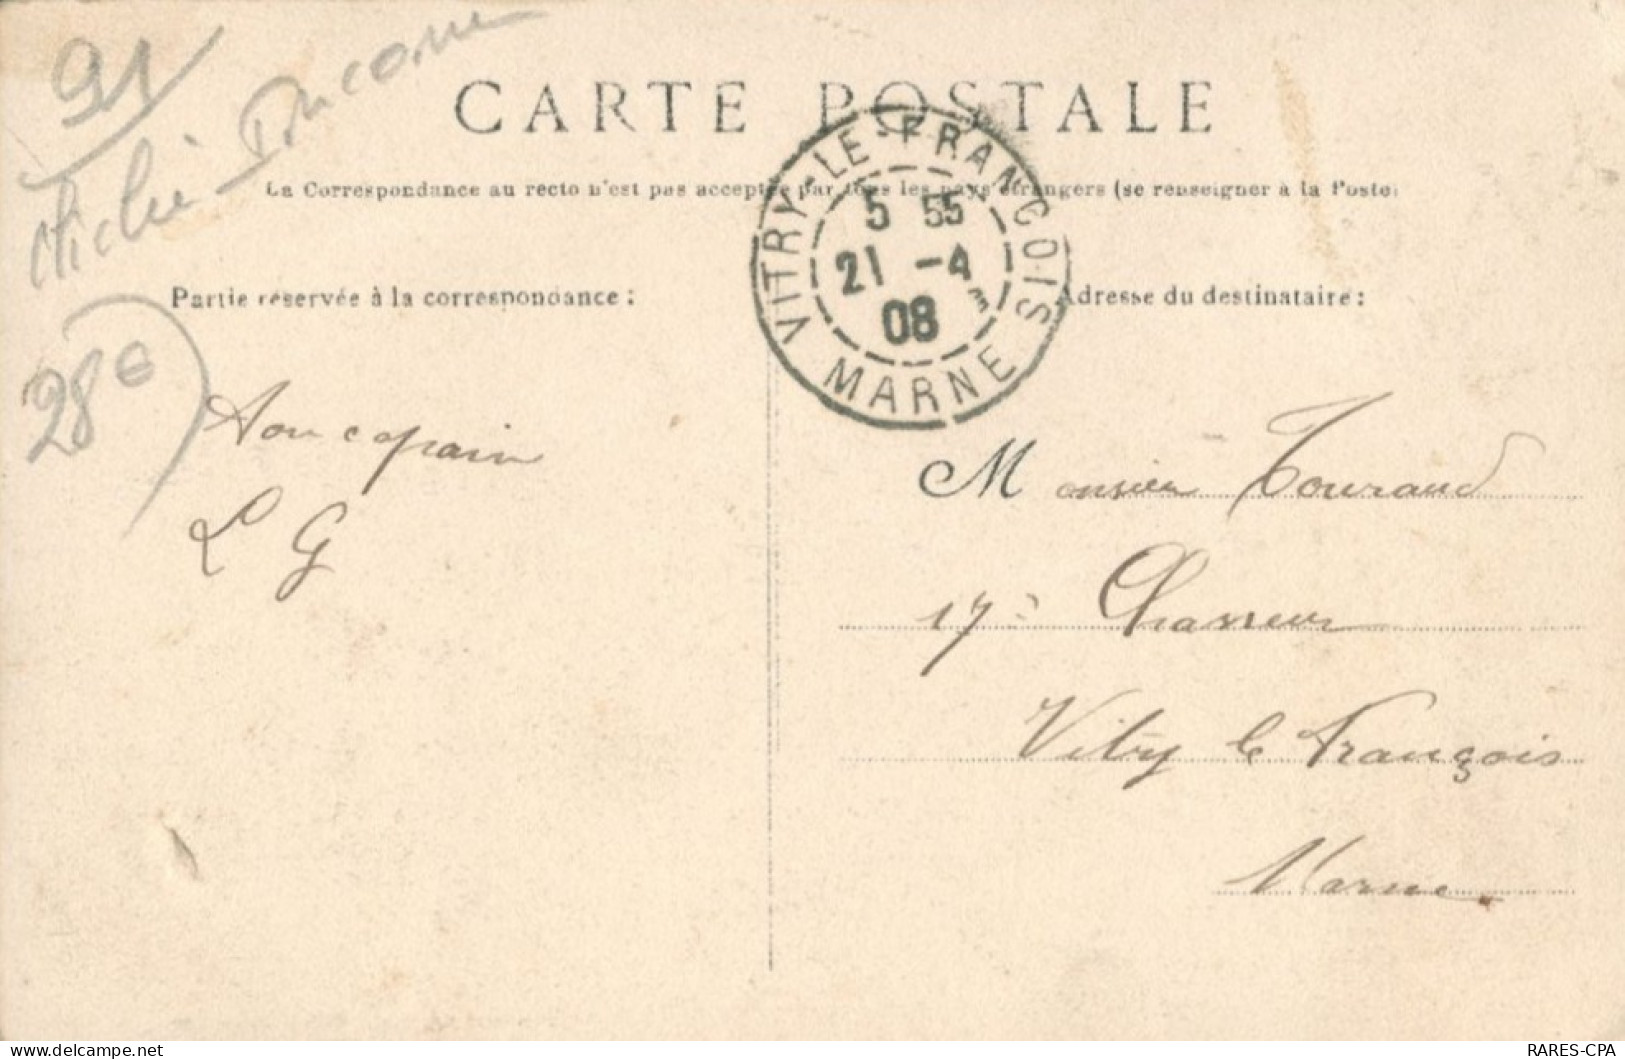 91
Cliché
CARTE POSTALE
La Correspondance au recto n'est pas acceptée par tous les pays étrangers (se renseigner à la Poste)
VITRY-LE-FRANCOIS
5 55
21 -4
08
MARNE
Partie réservée à la correspondance :
Adresse du destinataire :
28€
Ton copain
L G
Monsieur Touraud
17e Chasseur
Vitry le François
Marne.
delcampe.net
RARES-CPA